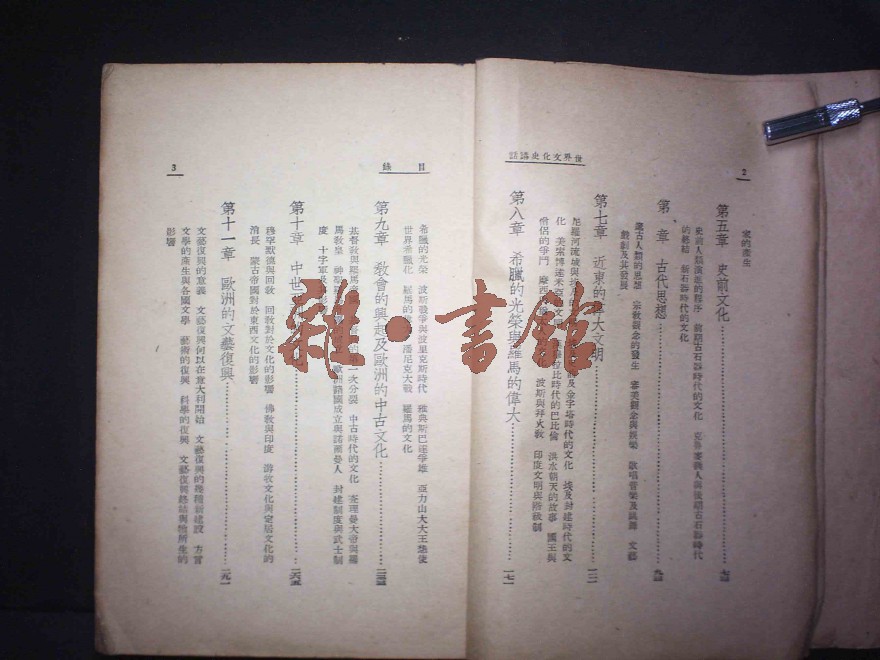 2
世界文化史講話
家的產生
第五章 史前文化 七四
史前人類演進的程序 前期古石器時代的文化 克魯麥農人與後期古石器時代
的藝術 新石器時代的文化
第 章 古代思想
蒙古人類的思想 宗教觀念的發生 審美觀念與娛樂 歌唱音樂及跳舞 文藝
戲劇及其發展
第七章 近東的偉大文明
尼羅河流域與埃及 及金字塔時代的文化 埃及封建時代的文
化 美索博達米亞 比時代的巴比倫 洪水朝天的故事 國王與
僧侶的爭鬥 摩西 波斯與拜火教 印度文明與階級制
第八章 希臘的光榮與羅馬的偉大 一七一
目錄
3
希臘的光榮 波斯戰爭與波里克斯時代 雅典斯巴達爭雄 亞力山大大王想使
世界希臘化 羅馬的 潘尼克大戰 羅馬的文化
第九章 教會的興起及歐洲的中古文化
基督教與羅馬帝國 第一次分裂 中古時代的文化 查理曼大帝與羅
馬教皇 神聖羅馬 歐洲諸國成立與諾爾曼人 封建制度與武士制
度 十字軍
第十章 中世
穆罕默德與回教 回教對於文化的影響 佛教與印度 游牧文化與定居文化的
消長 蒙古帝國對於東西文化的影響
第十一章 歐洲的文藝復興 二九一
文藝復興的意義 文藝復興何以在意大利開始 文藝復興的幾種新建設 方言
文學的產生與各國文學 藝術的復興 科學的復興 文藝復興終結與牠所生的
影響
雜·書館